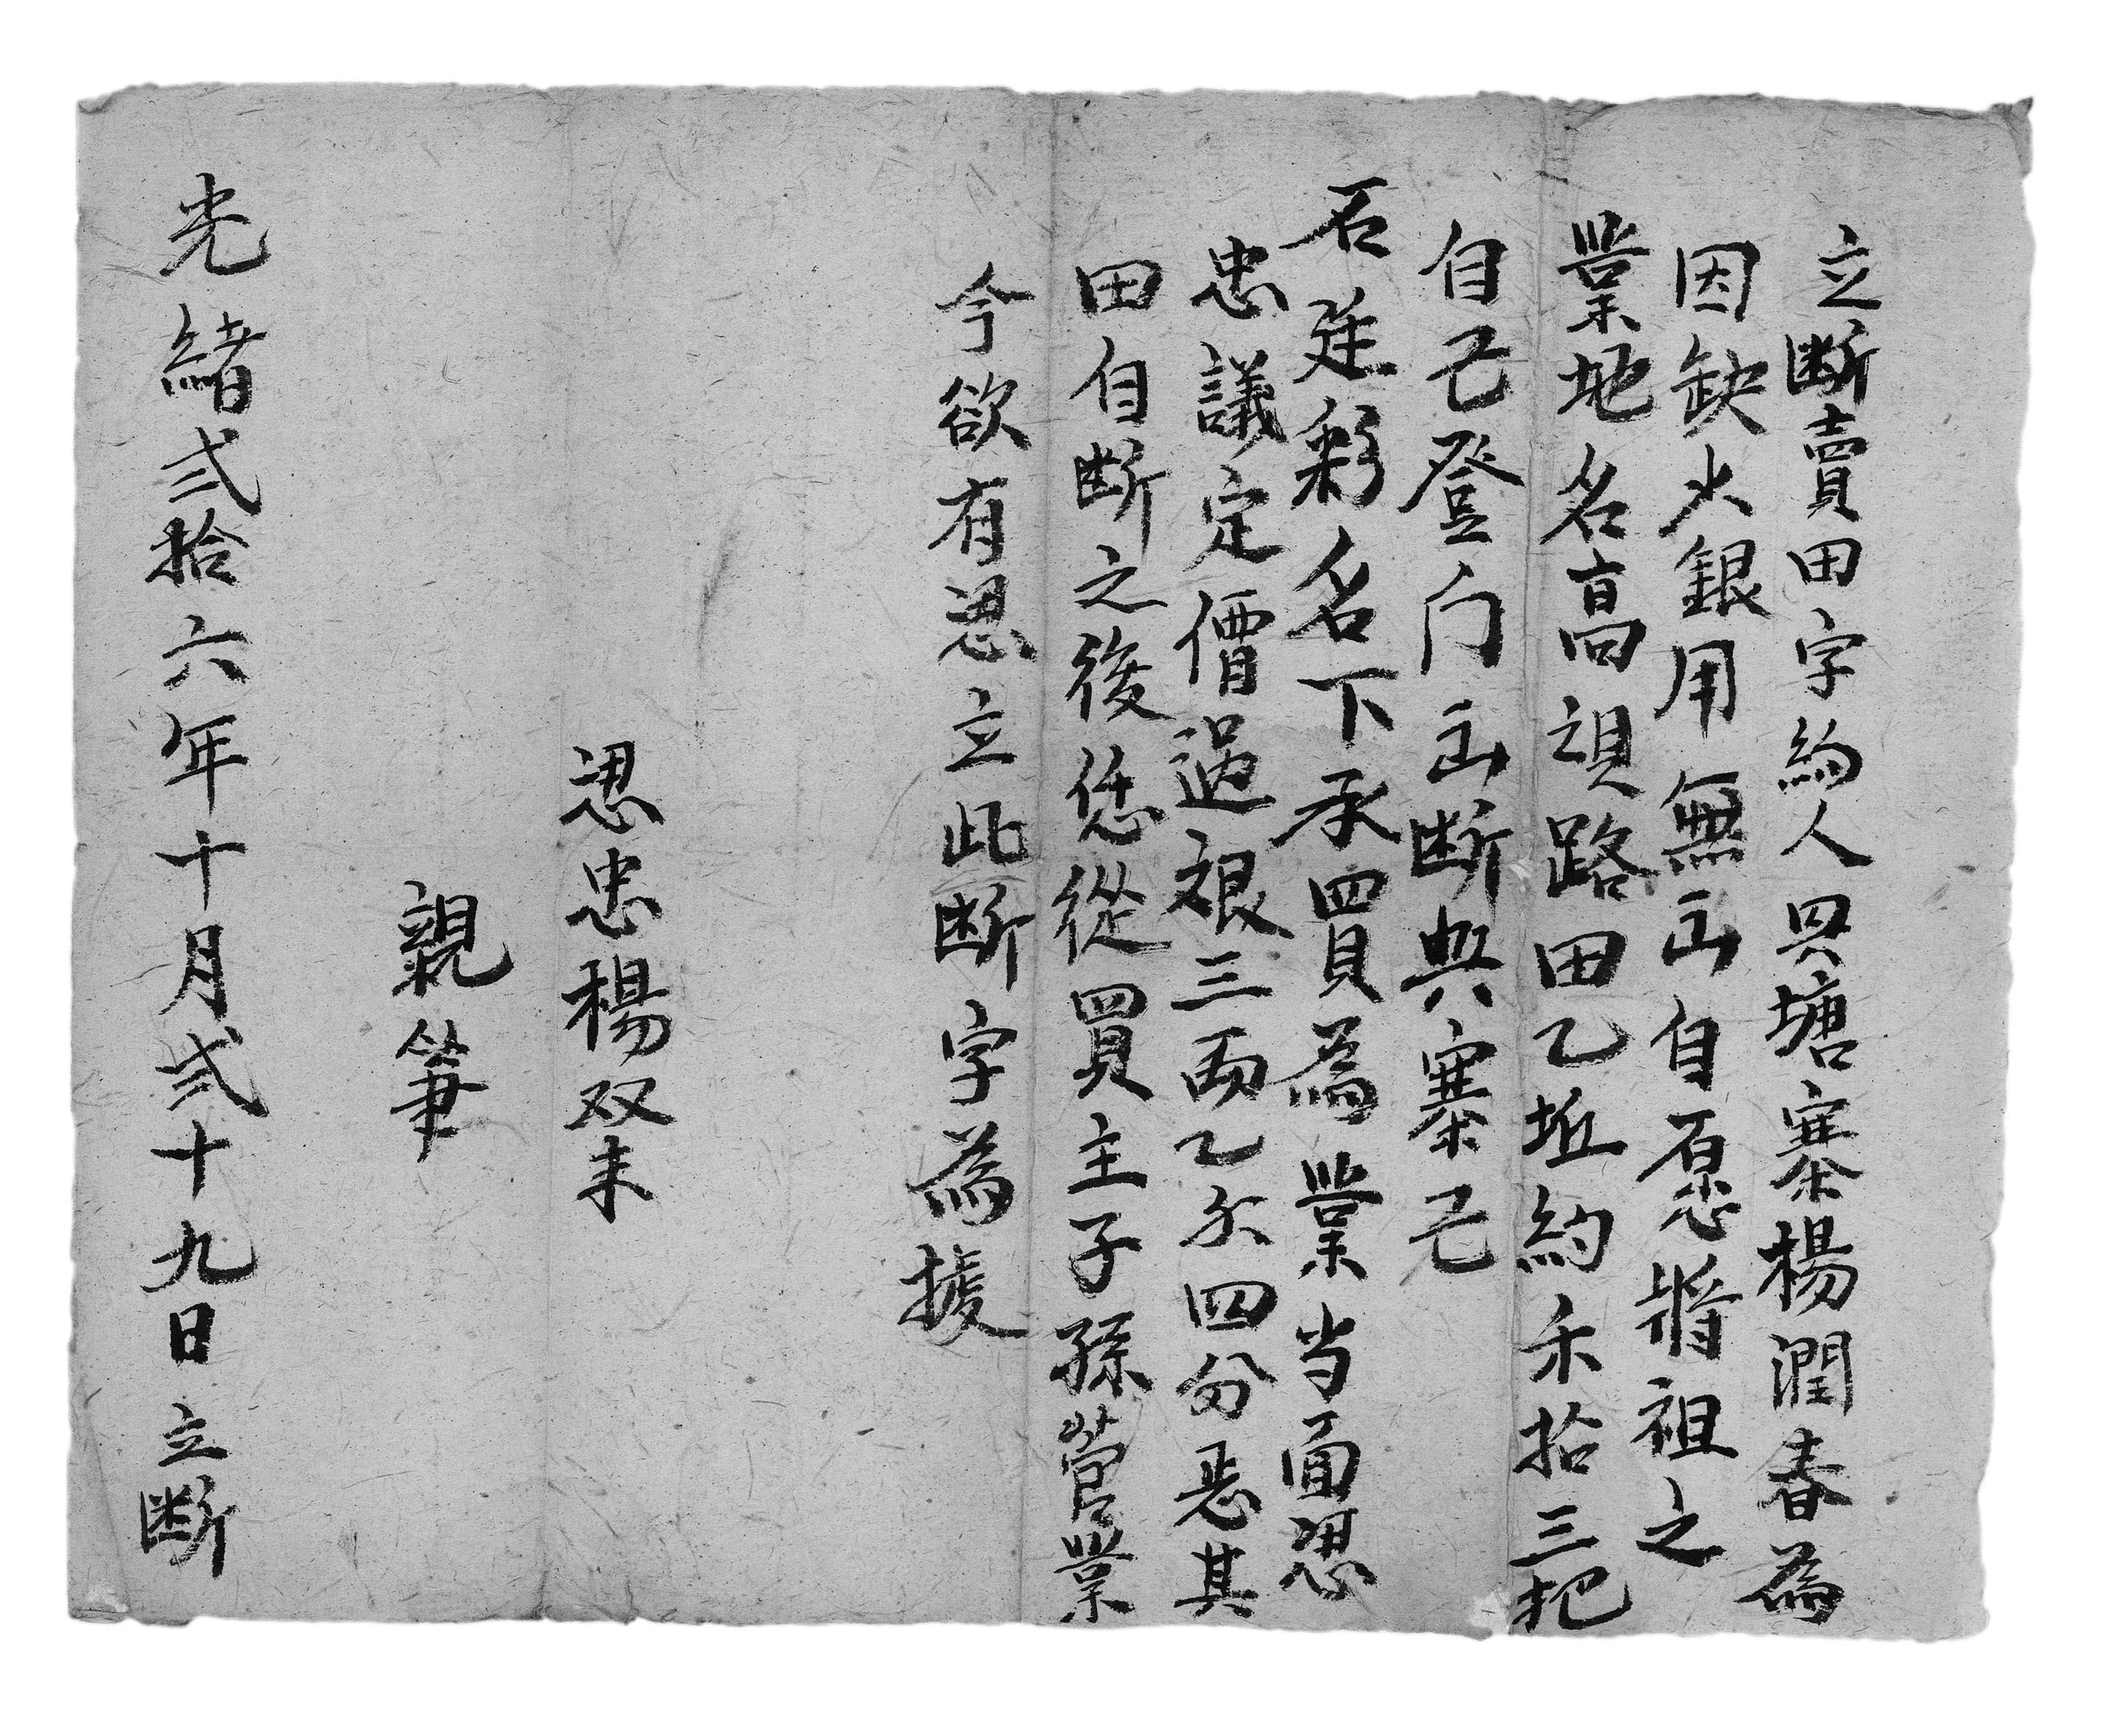 立断賣田字約人四塘寨楊潤春為
因缺少銀用無山自愿將祖之
業地名高垻路田乙坵約禾拾三把
自己登门山断與寨己
石廷彩名下承買為業当面恩
忠議定價過艰三两乙尔四分悉其
田自断之後恁從買主子孫菅業
今欲有恩立此断字為㨿
恩忠楊双未
親筆
光緒弍拾六年十月弍十九日立断